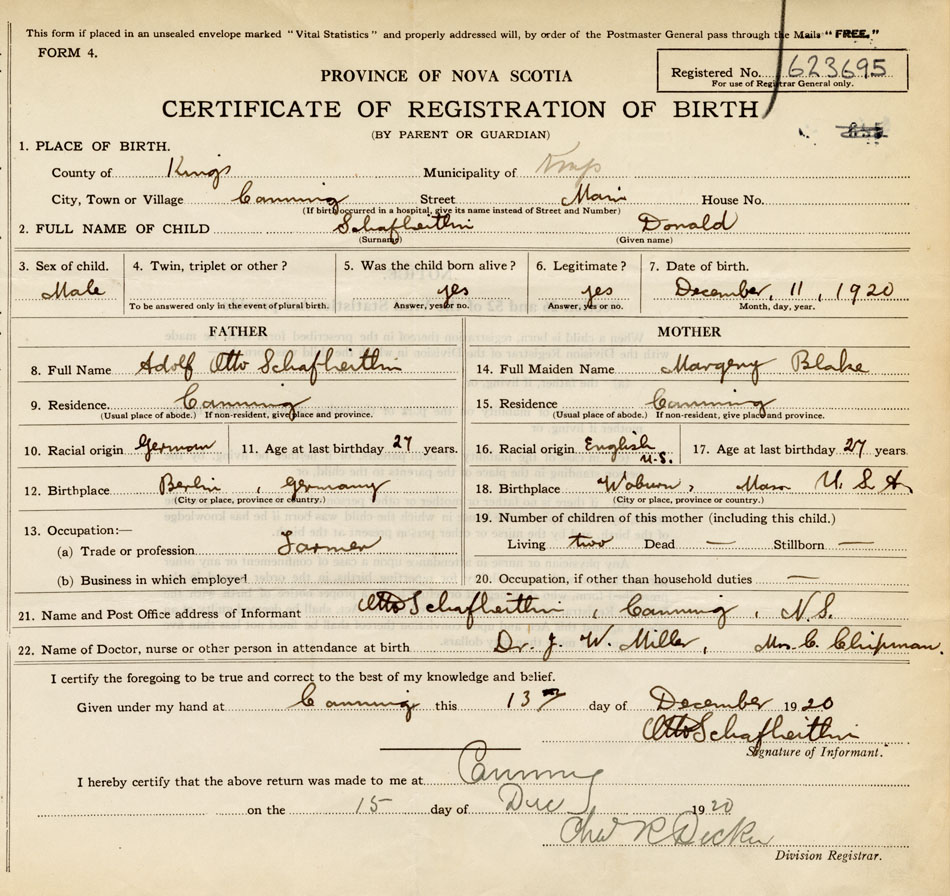 This form if placed in an unsealed envelope marked "Vital Statistics" and properly addressed will, by order of the Postmaster General pass through the Mails "FREE."
FORM 4.
PROVINCE OF NOVA SCOTIA
Registered No. 623695
For use of Registrar General only.
CERTIFICATE OF REGISTRATION OF BIRTH
(BY PARENT OR GUARDIAN)
1. PLACE OF BIRTH.
County of Kings Municipality of Kings
City, Town or Village Canning Street Main House No.
(If birth occurred in a hospital, give its name instead of Street and Number)
2. FULL NAME OF CHILD Schafheitlin Donald
(Surname) (Given name)
3. Sex of child. 4. Twin, triplet or other? 5. Was the child born alive? 6. Legitimate? 7. Date of birth.
Male yes yes December, 11, 1920
To be answered only in the event of plural birth. Answer, yes or no. Answer, yes or no. Month, day, year.
FATHER MOTHER
8. Full Name Adolf Otto Schafheitlin 14. Full Maiden Name Margery Blake
9. Residence. Canning 15. Residence Canning
(Usual place of abode.) If non-resident, give place and province. (Usual place of abode.) If non-resident, give place and province.
10. Racial origin German 11. Age at last birthday 27 years. 16. Racial origin English U.S. 17. Age at last birthday 27 years.
12. Birthplace Berlin, Germany 18. Birthplace Woburn, Mass U.S.A.
(City or place, province or country.) (City or place, province or country.)
13. Occupation:— 19. Number of children of this mother (including this child.)
(a) Trade or profession Farmer Living two Dead — Stillborn —
(b) Business in which employed 20. Occupation, if other than household duties —
21. Name and Post Office address of Informant Otto Schafheitlin, Canning, N.S.
22. Name of Doctor, nurse or other person in attendance at birth Dr. J. W. Miller, Mrs. C. Chipman.
I certify the foregoing to be true and correct to the best of my knowledge and belief.
Given under my hand at Canning this 13 day of December 1920
Otto Schafheitlin
Signature of Informant.
I hereby certify that the above return was made to me at Canning
on the 15 day of Dec 1920
Chas R Decker
Division Registrar.